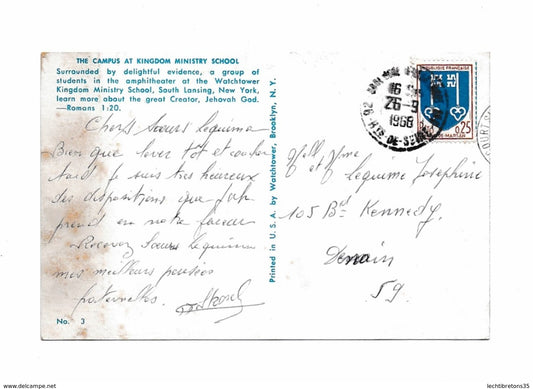 THE CAMPUS AT KINGDOM MINISTRY SCHOOL
Surrounded by delightful evidence, a group of
students in the amphitheater at the Watchtower
Kingdom Ministry School, South Lansing, New York,
learn more about the great Creator, Jehovah God.
—Romans 1:20.
Chers Sœurs Lequime
Bien que lever tôt et coucher
tard je suis très heureux
des dispositions que Jéh
prend en notre faveur
Recevez Sœurs Lequime
mes meilleurs pensées
fraternelles.
No. 3
Printed in U. S. A. by Watchtower, Brooklyn, N. Y.
16 H
26-9
1968
92 HTS-DE-SEINE
REPUBLIQUE FRANÇAISE
0,25
MONT-DE-MARSAN
Mell Mme
et Lequime Josephine
105 Bd Kennedy.
Denain
59.
www.delcampe.net
lechtibretons35